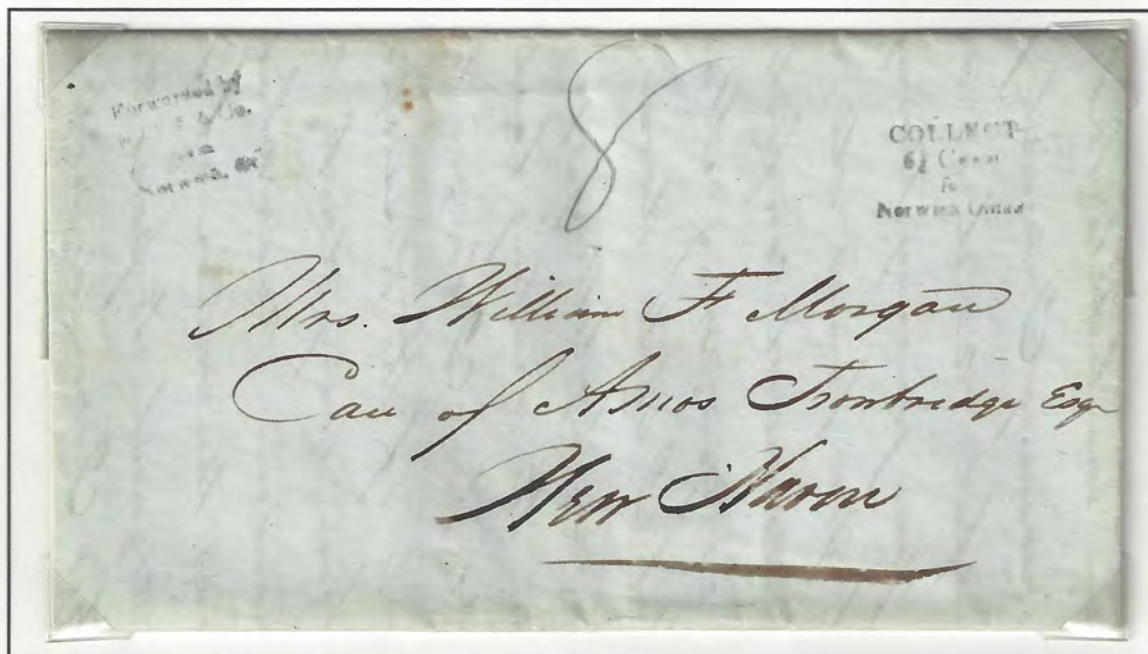 Forwarded by
& Co.
from
Norwich, Ct.
8
COLLECT
6¼ Cents
for
Norwich Office
Mrs. William F Morgan
Care of Amos Trowbridge Esqr
New Haven